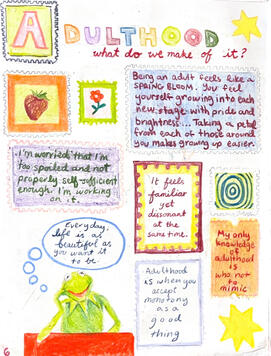 ADULTHOOD
what do we make of it?
Being an adult feels like a
SPRING BLOOM. You feel
yourself growing into each
new stage with pride and
brightness... Taking a petal
from each of those around
you makes growing up easier.
I'm worried that I'm
too spoiled and not
properly self-sufficient
enough. I'm working
on it.
It feels
familiar
yet
dissonant
at the
same time.
Everyday,
life is as
beautiful as
you want it
to be.
Adulthood
is when you
accept
monotony
as a
good
thing
My only
knowledge
of
adulthood
is
who not
to
mimic
6